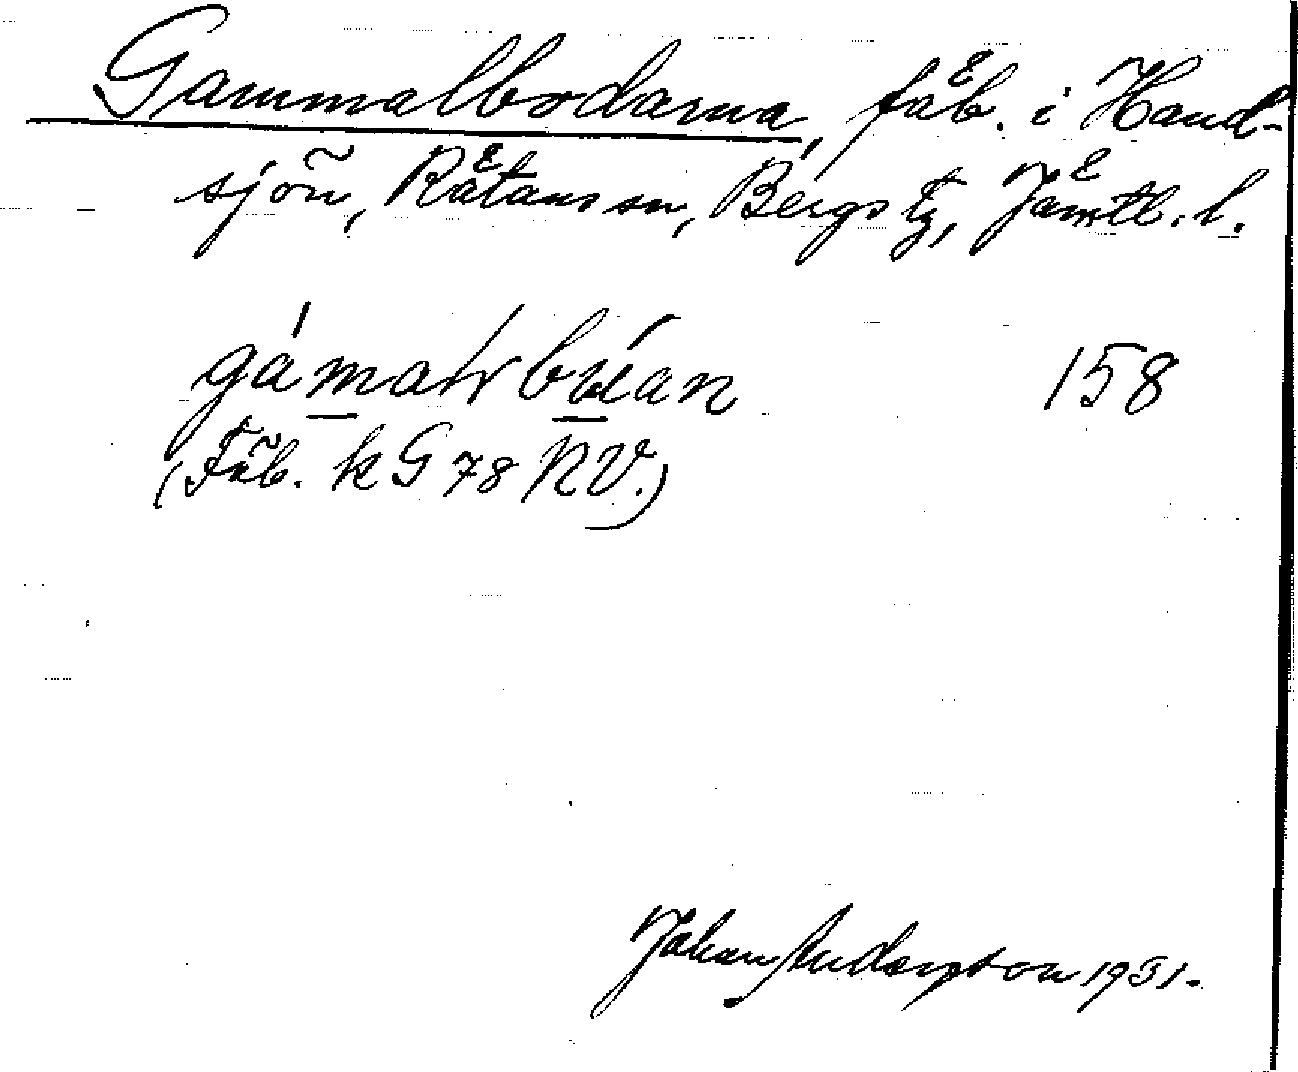 Gammalbodarna, fäb. i Hand-
sjön, Rätans sn, Bergs tg, Jämtl. l.
158
(Fäb. k G 78 NV.)
Johan Anderson 1931.